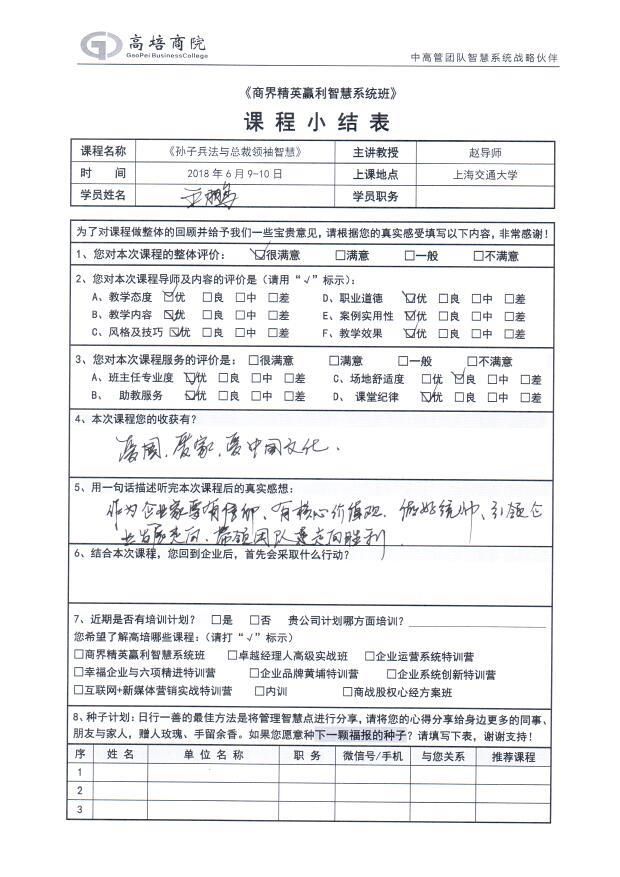 高培商院
GaoPei BusinessCollege
中高管团队智慧系统战略伙伴
《商界精英赢利智慧系统班》
课程小结表
课程名称 《孙子兵法与总裁领袖智慧》 主讲教授 赵导师
时 间 2018 年 6 月 9-10 日 上课地点 上海交通大学
学员姓名 王鹏 学员职务
为了对课程做整体的回顾并给予我们一些宝贵意见，请根据您的真实感受填写以下内容，非常感谢！
1、您对本次课程的整体评价： ☑很满意 □满意 □一般 □不满意
2、您对本次课程导师及内容的评价是（请用“√”标示）：
A、教学态度 ☑优 □良 □中 □差 D、职业道德 ☑优 □良 □中 □差
B、教学内容 ☑优 □良 □中 □差 E、案例实用性 ☑优 □良 □中 □差
C、风格及技巧 ☑优 □良 □中 □差 F、教学效果 ☑优 □良 □中 □差
3、您对本次课程服务的评价是： □很满意 □满意 □一般 □不满意
A、班主任专业度 ☑优 □良 □中 □差 C、场地舒适度 □优 ☑良 □中 □差
B、 助教服务 ☑优 □良 □中 □差 D、 课堂纪律 ☑优 □良 □中 □差
4、本次课程您的收获有？
爱国，爱家，爱中国文化．
5、用一句话描述听完本次课程后的真实感想：
作为企业家要有信仰、有核心价值观．做好统帅、引领企
业发展方向、带领团队走向胜利
6、结合本次课程，您回到企业后，首先会采取什么行动？
7、近期是否有培训计划？ □是 □否 贵公司计划哪方面培训？
您希望了解高培哪些课程：（请打“√”标示）
□商界精英赢利智慧系统班 □卓越经理人高级实战班 □企业运营系统特训营
□幸福企业与六项精进特训营 □企业品牌黄埔特训营 □企业系统创新特训营
□互联网+新媒体营销实战特训营 □内训 □商战股权心经方案班
8、种子计划：日行一善的最佳方法是将管理智慧点进行分享，请将您的心得分享给身边更多的同事、
朋友与家人，赠人玫瑰、手留余香。如果您愿意种下一颗福报的种子？请填写下表，谢谢支持！
序 姓 名 单 位 名 称 职 务 微信号/手机 与您关系 推荐课程
1
2
3